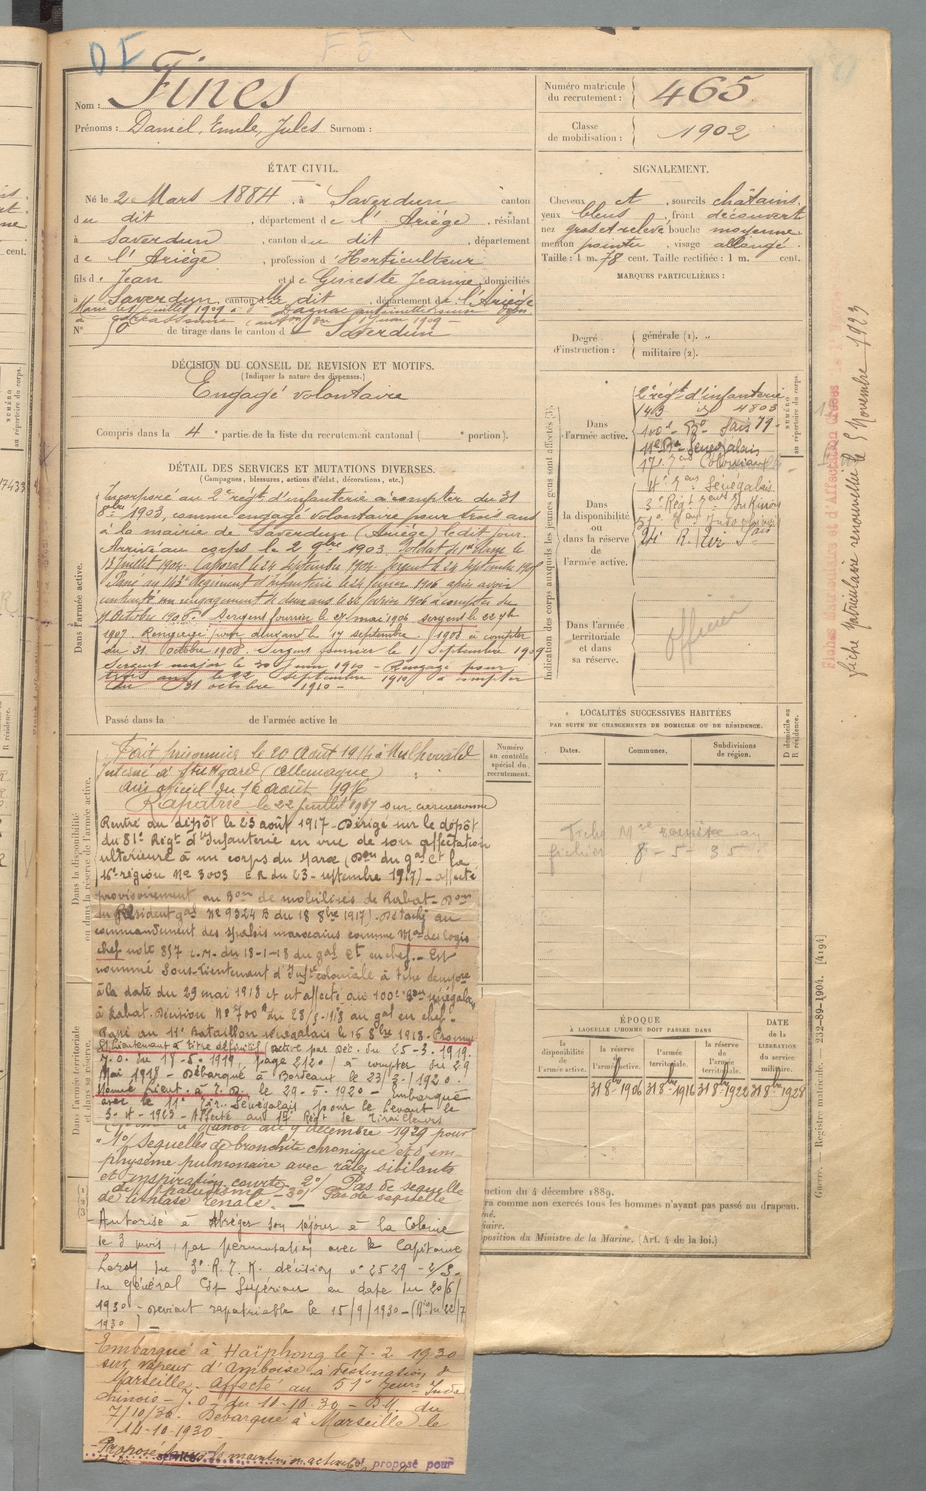 Nom : Fines
Prénoms : Daniel, Emile, Jules Surnom :
Numéro matricule du recrutement : 465
Classe de mobilisation : 1902
ÉTAT CIVIL.
Né le 2 Mars 1884, à Saverdun canton
du dit, département de l'Ariège, résidant
à Saverdun, canton du dit, département
de l'Ariège, profession d'Horticulteur
fils de Jean et de Jeanne, domiciliés
à Saverdun, canton du dit, département de l'Ariège
N° 50 de tirage dans le canton de Saverdun
SIGNALEMENT.
Cheveux et sourcils châtains
yeux bleus, front découvert
nez gros et relevé bouche moyenne
menton pointu, visage allongé.
Taille : 1 m. 78 cent. Taille rectifiée : 1 m. cent.
MARQUES PARTICULIÈRES :
Degré d'instruction : générale (1). „
militaire (2).
DÉCISION DU CONSEIL DE REVISION ET MOTIFS.
(Indiquer la nature des dispenses.)
Engagé volontaire
Compris dans la 4e partie de la liste du recrutement cantonal ( e portion).
DÉTAIL DES SERVICES ET MUTATIONS DIVERSES.
(Campagnes, blessures, actions d'éclat, décorations, etc.)
Incorporé au 2e régt d'infanterie à compter du 31
8bre 1903, comme engagé volontaire pour trois ans
à la mairie de Saverdun (Ariège) le dit jour.
Arrivé au corps le 2 9bre 1903, soldat de 1e classe le
13 juillet 1904. Caporal le 24 septembre 1904. Sergent le 24 septembre 1905
Passé au 143e Régiment d'infanterie le 24 février 1906 après avoir
contracté un rengagement de deux ans le 26 février 1906 à compter du
31 Octobre 1906. Sergent fourrier le 27 mai 1906 sergent le 22 7bre
1907. Rengagé pour deux ans le 17 septembre 1908 à compter
du 31 octobre 1908. Sergent fourrier le 1 Septembre 1909
Sergent major le 30 juin 1910 - Rengagé pour
trois ans le 22 septembre 1910 à compter
du 31 octobre 1910 -
Dans l'armée active.
2e régt d'infanterie
143 id 4803
11e Bon Sénégalais
Dans la disponibilité ou dans la réserve de l'armée active.
Dans l'armée territoriale et dans sa réserve.
officier
Indication des corps auxquels les jeunes gens sont affectés (3).
NUMÉRO au répertoire du corps.
fiche matriculaire renouvelée le 5 Novembre 1923
Passé dans la de l'armée active le
Numéro au contrôle spécial du recrutement.
Fait prisonnier le 20 Août 1914 à
interné à Stuttgard (Allemagne)
avis officiel du 16 août 1916
Rapatrié le 22 juillet 1917 sur Carcassonne
Rentré au dépôt le 23 août 1917 - Dirigé sur le dépôt
du 81e Régt d'Infanterie en vue de son affectation
ultérieure à un corps du Maroc (Don du gal Ct la
16e région No 3003 E R du 23 septembre 1917) - affecté
provisoirement au Bon de mobilisés de Rabat - Don
du Résident gal No 9324 B du 18 8bre 1917). Détaché au
commandement des spahis marocains comme Mal des logis
chef note 857 C.M. du 18-1-18 du gal Ct en chef. - Est
nommé Sous-Lieutenant d'Infrie coloniale à titre tempre
à la date du 29 mai 1918 et est affecté au 100e Bon sénégalais
à Rabat. Décision No 700 du 28/5/1918 du gal en chef.
Passé au 11e Bataillon sénégalais le 16 8bre 1918. Promu
St Lieutenant à titre définitif (active par Déc. du 25-3-1919.
J.O. du 17-5-1919, page 2120) à compter du 29
Mai 1918 - Débarqué à Bordeaux le 23/2/1920.
Nommé Lieut. à T.D. le 29-5-1920 - Embarqué
avec le 11e Tir. Sénégalais pour le Levant le
Affecté au 17e Régt de Tirailleurs
Hanoï du 9 décembre 1929 pour
"1°/ Sequelles de bronchite chronique et d'em-
physème pulmonaire avec râles sibilants
et inspiration courte - 2°/ Pas de sequelle
de paludisme - 3°/ Pas de sequelle
de lithiase rénale. -
Autorisé à Abréger son séjour à la Colonie
de 3 mois, par permutation avec le Capitaine
Leroy du 3e R.T.K. décision no 2529 - 2/3 -
du général Cdt Supérieur en date du 20/6/
1930 - devient rapatriable le 15/9/1930 -
Embarqué à Haïphong le 7-2 1930
sur vapeur d'Amboise à destination de
Marseille - Affecté au 51e
chinois - J.O. du 10-10-30 - B.M. du
7/10/30. Débarqué à Marseille le
14-10-1930 -
proposé pour
LOCALITÉS SUCCESSIVES HABITÉES
PAR SUITE DE CHANGEMENTS DE DOMICILE OU DE RÉSIDENCE.
Dates. Communes. Subdivisions de région. D domicile ou R résidence.
fichier 8-5-35
ÉPOQUE
À LAQUELLE L'HOMME DOIT PASSER DANS
la disponibilité de l'armée active.
la réserve de l'armée active.
l'armée territoriale.
la réserve de l'armée territoriale.
DATE de la LIBÉRATION du service militaire.
31 8bre 1906 31 8bre 1916 31 8bre 1922 31 8bre 1928
ction du 4 décembre 1889.
ra comme non exercés tous les hommes n'ayant pas passé au drapeau.
position du Ministre de la Marine. (Art. 4 de la loi.)
Guerre. — Registre matricule. — 232-89-1904. [4194]